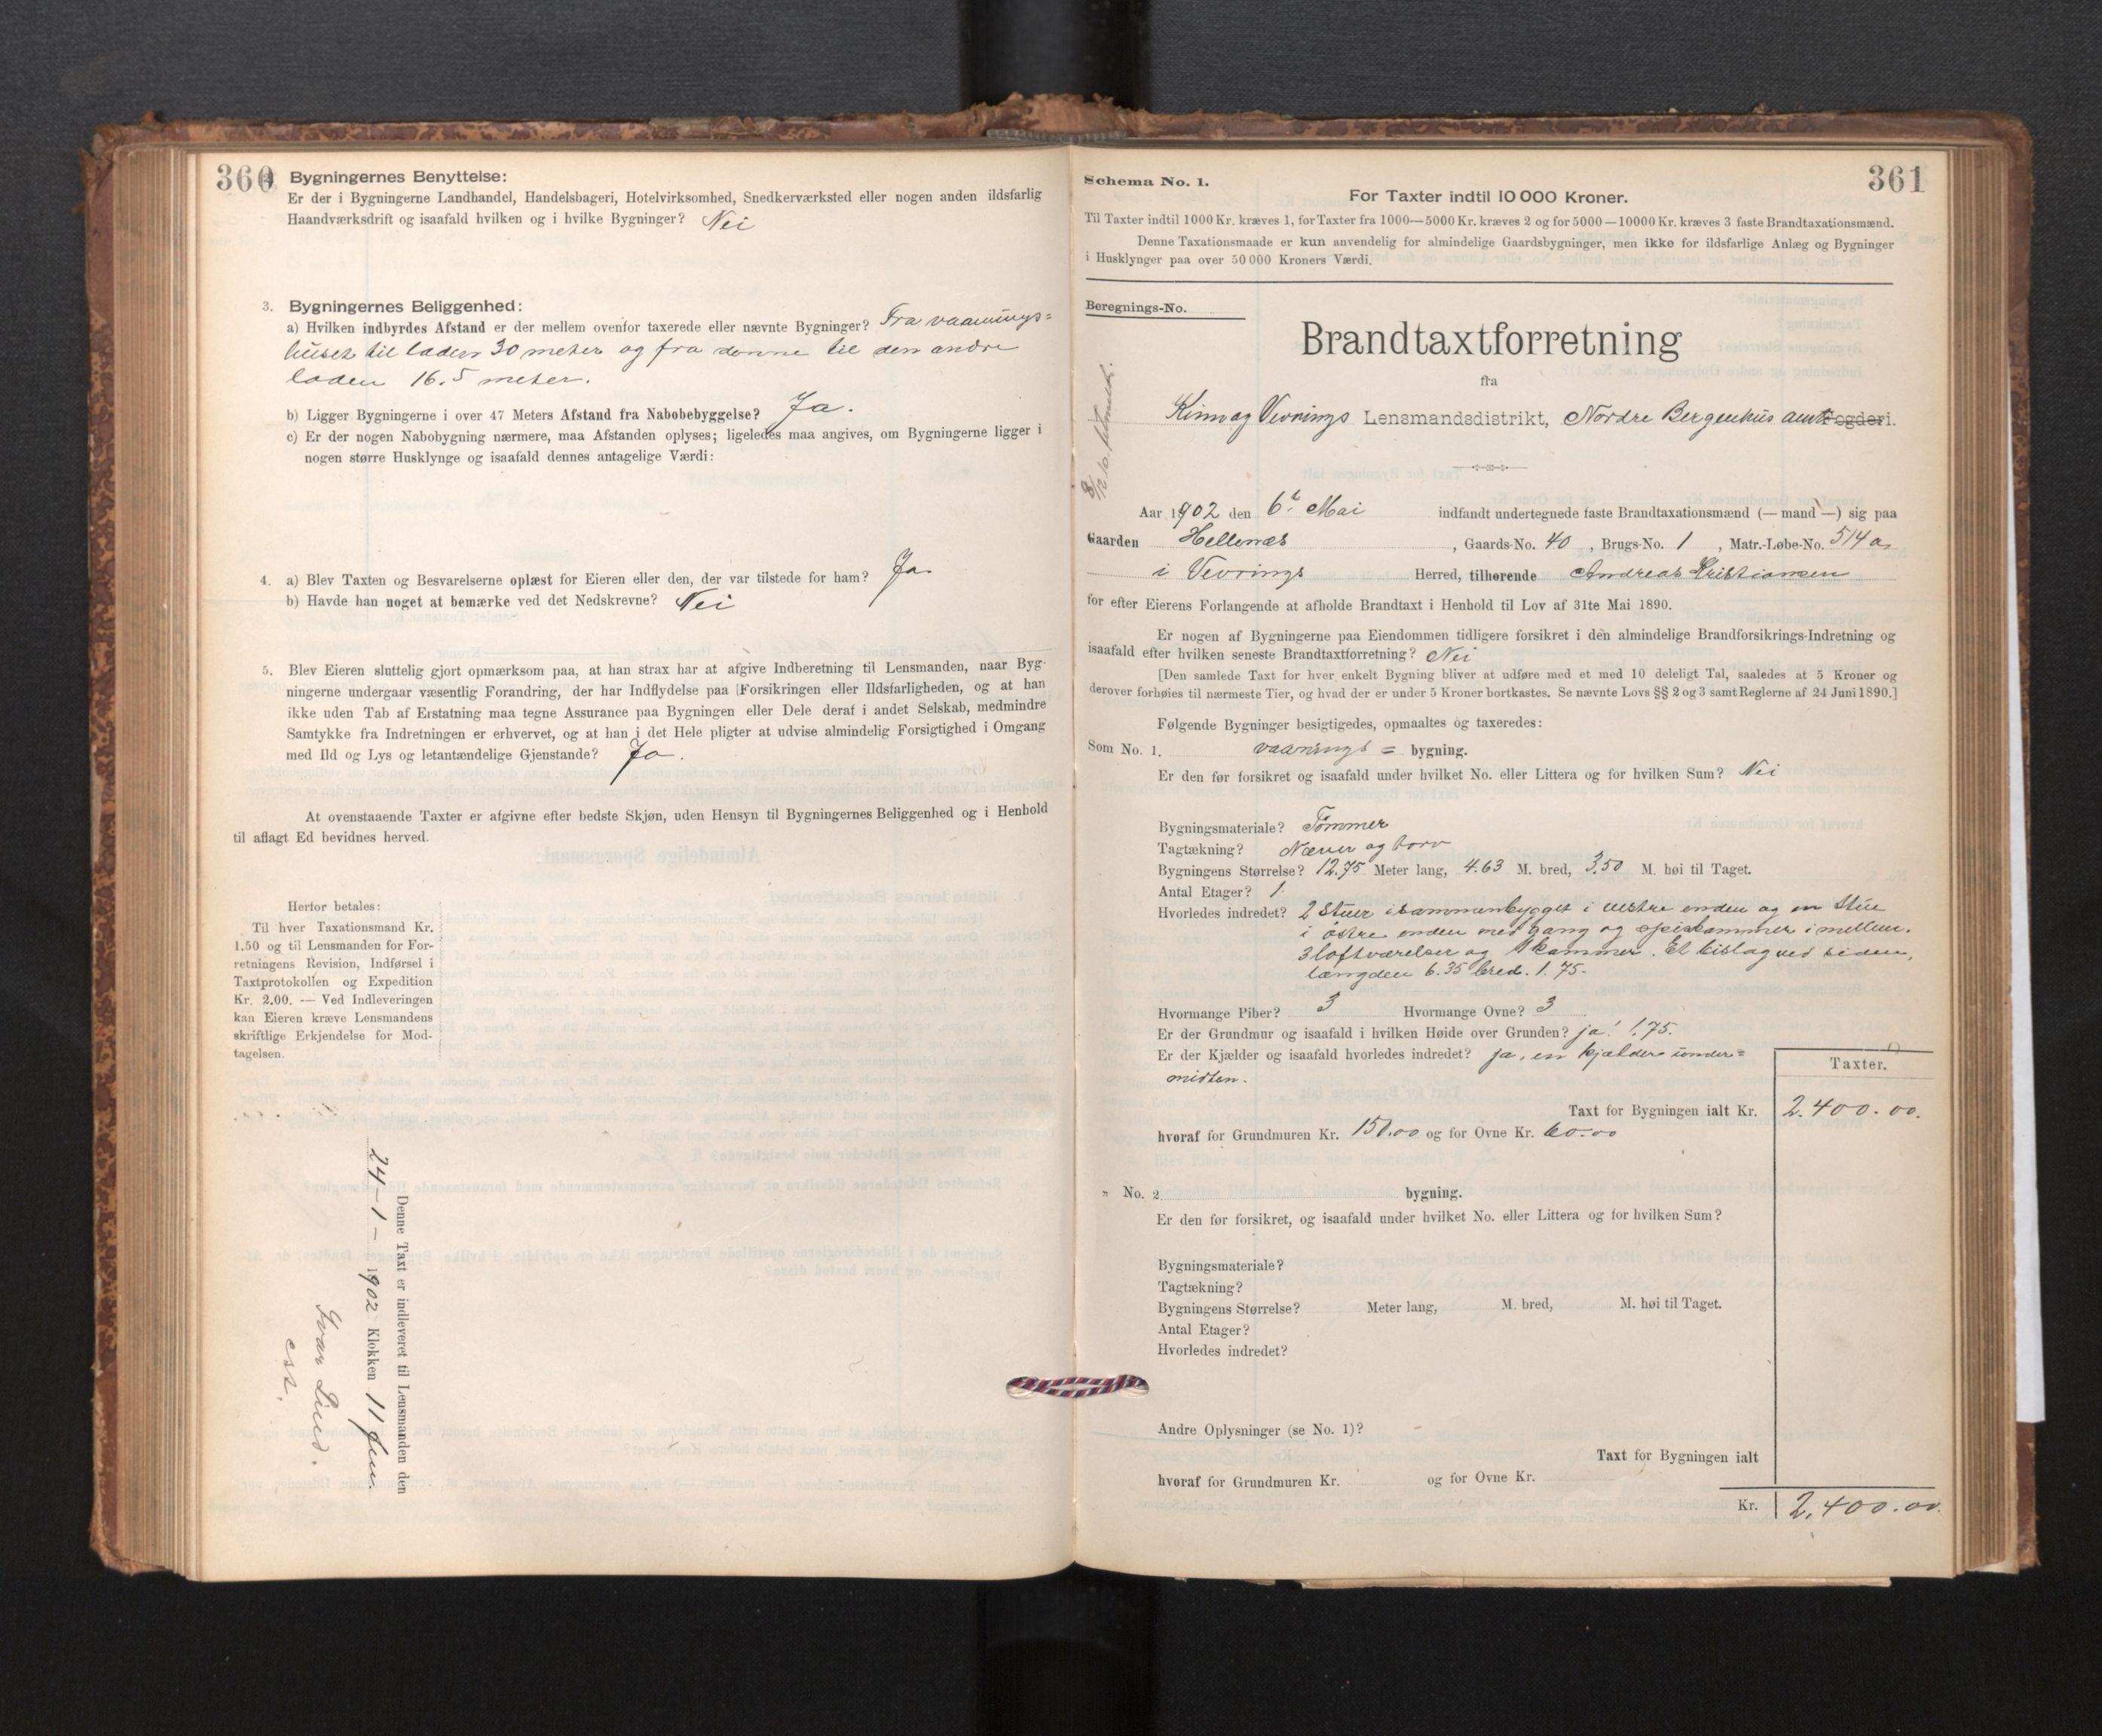 360
2. Bygningernes Benyttelse:
Er der i Bygningerne Landhandel, Handelsbageri, Hotelvirksomhed, Snedkerværksted eller nogen anden ildsfarlig
Haandværksdrift og isaafald hvilken og i hvilke Bygninger? Nei
3. Bygningernes Beliggenhed:
a) Hvilken indbyrdes Afstand er der mellem ovenfor taxerede eller nævnte Bygninger? Fra vaanings=
huset til laden 30 meter og fra denne til den andre
laden 16.5 meter.
b) Ligger Bygningerne i over 47 Meters Afstand fra Nabobebyggelse? Ja.
c) Er der nogen Nabobygning nærmere, maa Afstanden oplyses; ligeledes maa angives, om Bygningerne ligger i
nogen større Husklynge og isaafald dennes antagelige Værdi:
4. a) Blev Taxten og Besvarelserne oplæst for Eieren eller den, der var tilstede for ham? Ja
b) Havde han noget at bemærke ved det Nedskrevne? Nei
5. Blev Eieren sluttelig gjort opmærksom paa, at han strax har at afgive Indberetning til Lensmanden, naar Byg-
ningerne undergaar væsentlig Forandring, der har Indflydelse paa Forsikringen eller Ildsfarligheden, og at han
ikke uden Tab af Erstatning maa tegne Assurance paa Bygningen eller Dele deraf i andet Selskab, medmindre
Samtykke fra Indretningen er erhvervet, og at han i det Hele pligter at udvise almindelig Forsigtighed i Omgang
med Ild og Lys og letantændelige Gjenstande? Ja.
At ovenstaaende Taxter er afgivne efter bedste Skjøn, uden Hensyn til Bygningernes Beliggenhed og i Henhold
til aflagt Ed bevidnes herved.
Herfor betales:
Til hver Taxationsmand Kr.
1.50 og til Lensmanden for For-
retningens Revision, Indførsel i
Taxtprotokollen og Expedition
Kr. 2.00. — Ved Indleveringen
kan Eieren kræve Lensmandens
skriftlige Erkjendelse for Mod-
tagelsen.
Denne Taxt er indleveret til Lensmanden den
24-1- 1902 Klokken 11 fm.
Ivar Lund.
361
Schema No. 1.
For Taxter indtil 10 000 Kroner.
Til Taxter indtil 1000 Kr. kræves 1, for Taxter fra 1000—5000 Kr. kræves 2 og for 5000—10000 Kr. kræves 3 faste Brandtaxationsmænd.
Denne Taxationsmaade er kun anvendelig for almindelige Gaardsbygninger, men ikke for ildsfarlige Anlæg og Bygninger
i Husklynger paa over 50 000 Kroners Værdi.
Beregnings-No.
Brandtaxtforretning
fra
Kinn og Vevrings Lensmandsdistrikt, Nordre Bergenhus amt Fogderi.
Aar 1902 den 6t. Mai indfandt undertegnede faste Brandtaxationsmænd (— mand —) sig paa
Gaarden Hellenæs, Gaards-No. 40, Brugs-No. 1, Matr.-Løbe-No. 514 a,
i Vevrings Herred, tilhørende Andreas Kristiansen
for efter Eierens Forlangende at afholde Brandtaxt i Henhold til Lov af 31te Mai 1890.
Er nogen af Bygningerne paa Eiendommen tidligere forsikret i den almindelige Brandforsikrings-Indretning og
isaafald efter hvilken seneste Brandtaxtforretning? Nei
[Den samlede Taxt for hver enkelt Bygning bliver at udføre med et med 10 deleligt Tal, saaledes at 5 Kroner og
derover forhøies til nærmeste Tier, og hvad der er under 5 Kroner bortkastes. Se nævnte Lovs §§ 2 og 3 samt Reglerne af 24 Juni 1890.]
Følgende Bygninger besigtigedes, opmaaltes og taxeredes:
Som No. 1. vaanings = bygning.
Er den før forsikret og isaafald under hvilket No. eller Littera og for hvilken Sum? Nei
Bygningsmateriale? Tømmer
Tagtækning? Næver og torv
Bygningens Størrelse? 12.75 Meter lang, 4.63 M. bred, 3.50 M. høi til Taget.
Antal Etager? 1
Hvorledes indredet? 2 Stuer isammenbygget i vestre enden og en Stue
i østre enden med gang og spiskammer i mellem.
3 loftsværelser og 1 kammer. Et bislag ved siden,
længden 6.35 bred. 1.75.
Hvormange Piber? 3 Hvormange Ovne? 3
Er der Grundmur og isaafald i hvilken Høide over Grunden? ja! 1.75.
Er der Kjælder og isaafald hvorledes indredet? ja, en kjælder under=
midten.
Taxter.
Taxt for Bygningen ialt Kr. 2.400.00.
hvoraf for Grundmuren Kr. 150.00 og for Ovne Kr. 60.00
" No. 2 bygning.
Er den før forsikret, og isaafald under hvilket No. eller Littera og for hvilken Sum?
Bygningsmateriale?
Tagtækning?
Bygningens Størrelse? Meter lang, M. bred, M. høi til Taget.
Antal Etager?
Hvorledes indredet?
Andre Oplysninger (se No. 1)?
Taxt for Bygningen ialt
hvoraf for Grundmuren Kr. og for Ovne Kr.
Kr. 2.400.00.